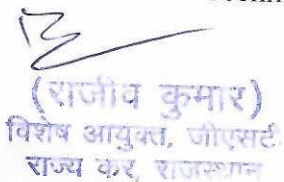 (राजीव कुमार)
विशेष आयुक्त, जीएसटी
राज्य कर, राजस्थान